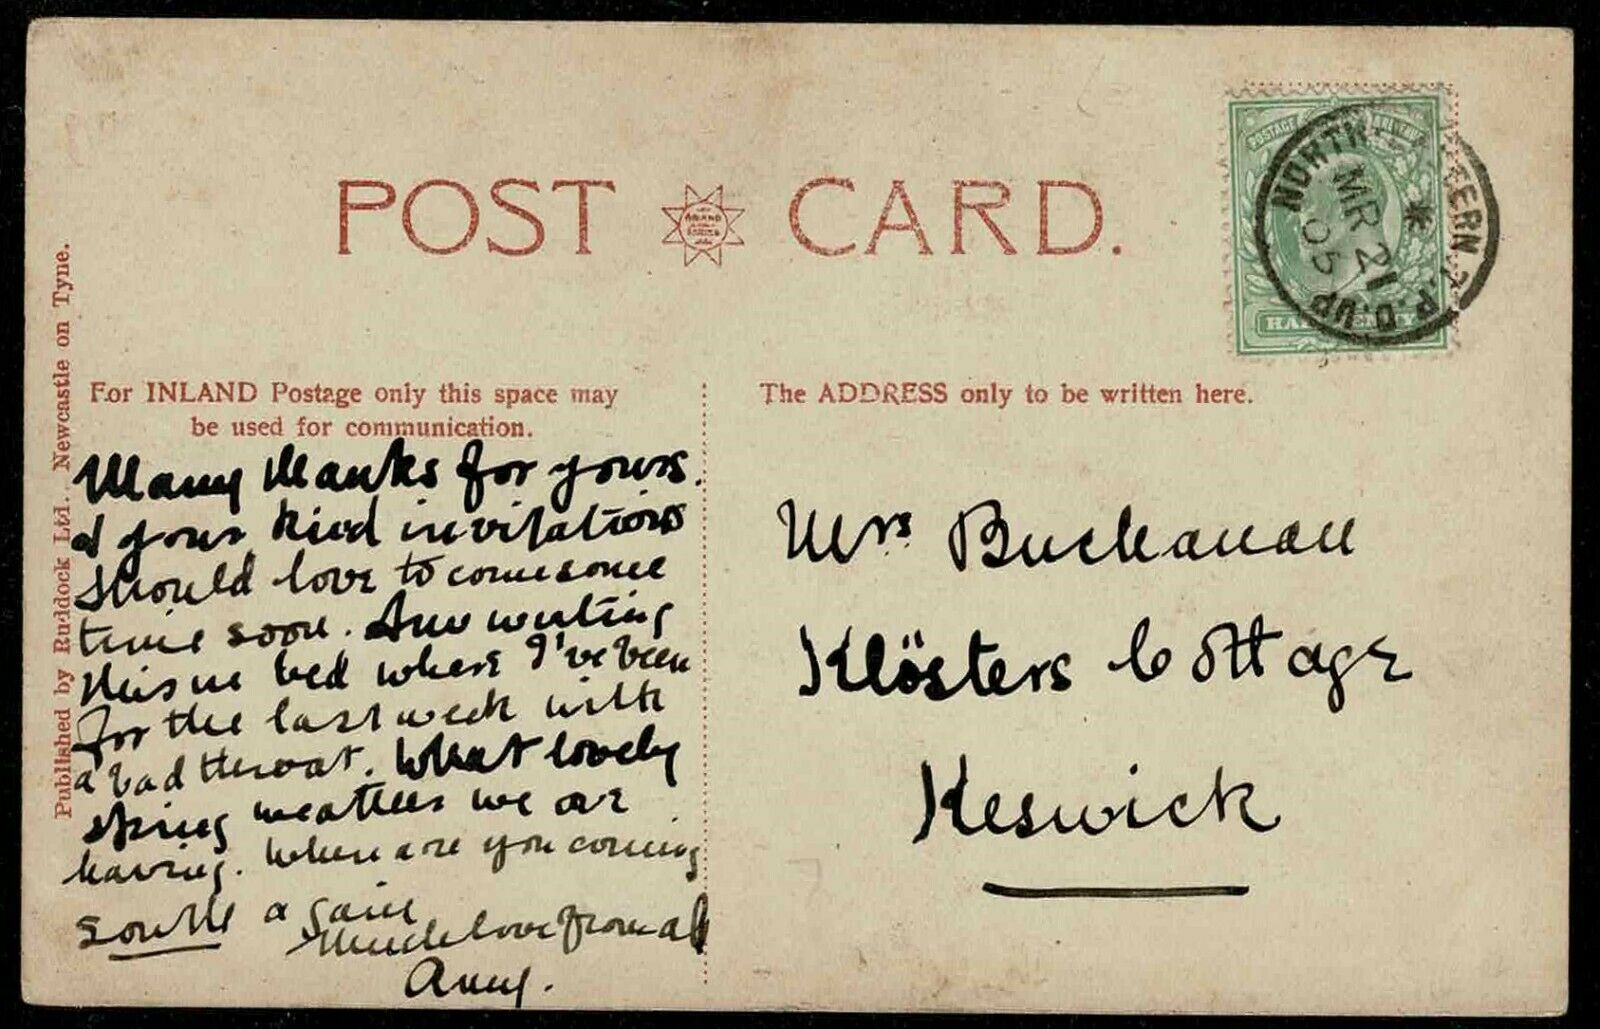 POST CARD.
POSTAGE REVENUE
HALFPENNY
NORTH-EASTERN T.P.O. UP
MR 21
05
Published by Ruddock Ltd. Newcastle on Tyne.
For INLAND Postage only this space may
be used for communication.
The ADDRESS only to be written here.
Many thanks for yours
& your kind invitations
should love to come some
time soon. Am writing
this in bed where I've been
for the last week with
a bad throat. What lovely
spring weather we are
having. When are you coming
south again
Much love from all
Amy.
Mrs. Buchanan
Klösters Cottage
Keswick